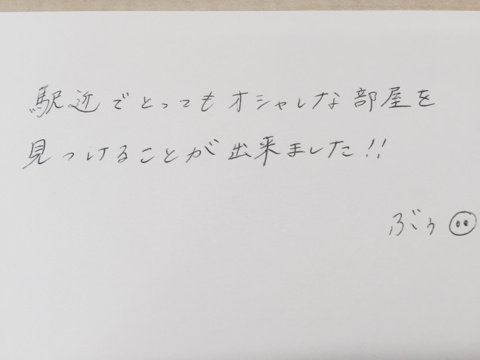 駅近でとってもオシャレな部屋を
見つけることが出来ました!!
ぶぅ